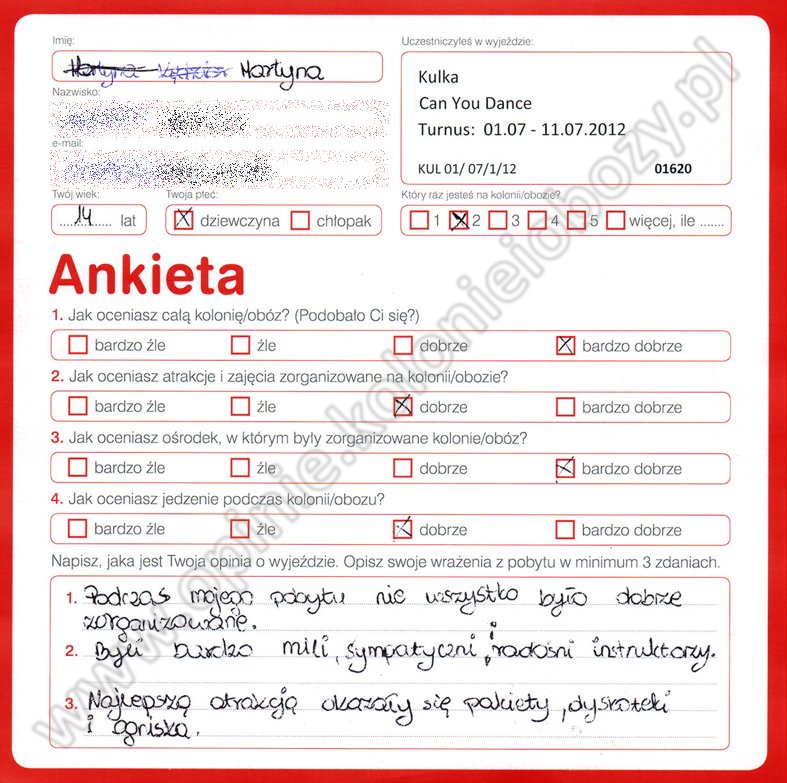 Imię:
Martyna
Uczestniczyłeś w wyjeździe:
Kulka
Can You Dance
Turnus: 01.07 - 11.07.2012
KUL 01/ 07/1/12 01620
Nazwisko:
e-mail:
Twój wiek: Twoja płeć: Który raz jesteś na kolonii/obozie?
14 lat dziewczyna chłopak 1 2 3 4 5 więcej, ile .......
Ankieta
1. Jak oceniasz całą kolonię/obóz? (Podobało Ci się?)
bardzo źle źle dobrze bardzo dobrze
2. Jak oceniasz atrakcje i zajęcia zorganizowane na kolonii/obozie?
bardzo źle źle dobrze bardzo dobrze
3. Jak oceniasz ośrodek, w którym były zorganizowane kolonie/obóz?
bardzo źle źle dobrze bardzo dobrze
4. Jak oceniasz jedzenie podczas kolonii/obozu?
bardzo źle źle dobrze bardzo dobrze
Napisz, jaka jest Twoja opinia o wyjeździe. Opisz swoje wrażenia z pobytu w minimum 3 zdaniach.
1. Podczas mojego pobytu nie wszystko było dobrze
zorganizowane.
2. Byli bardzo mili, sympatyczni i radośni instruktorzy.
3. Najlepszą atrakcją okazały się pakiety, dyskoteki
i ogniska.
www.opinie.kolonieiobozy.pl